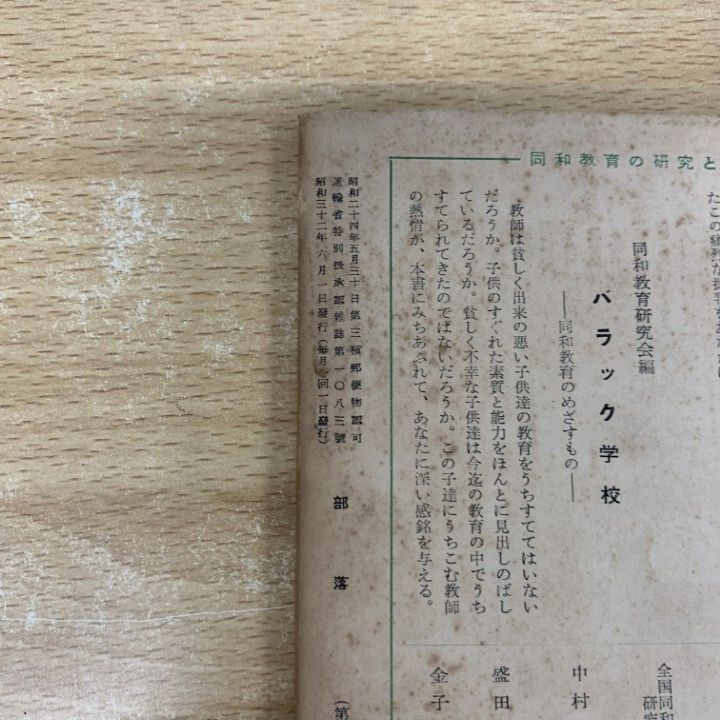 同和教育の研究と
同和教育研究会編
バラック学校
――同和教育のめざすもの――
教師は貧しく出来の悪い子供達の教育をうちすててはいない
だろうか。子供のすぐれた素質と能力をほんとに見出しのばし
ているだろうか。貧しく不幸な子供達は今迄の教育の中でうち
すてられてきたのではないだろうか。この子達にうちこむ教師
の熱情が、本書にみちあふれて、あなたに深い感銘を与える。
全国同和
研究
中村
盛田
金子
昭和二十四年五月三十日第三種郵便物認可
運輸省特別扱承認雑誌第一〇八三號
昭和三十二年六月一日發行(毎月一回一日發行)
部落
(第